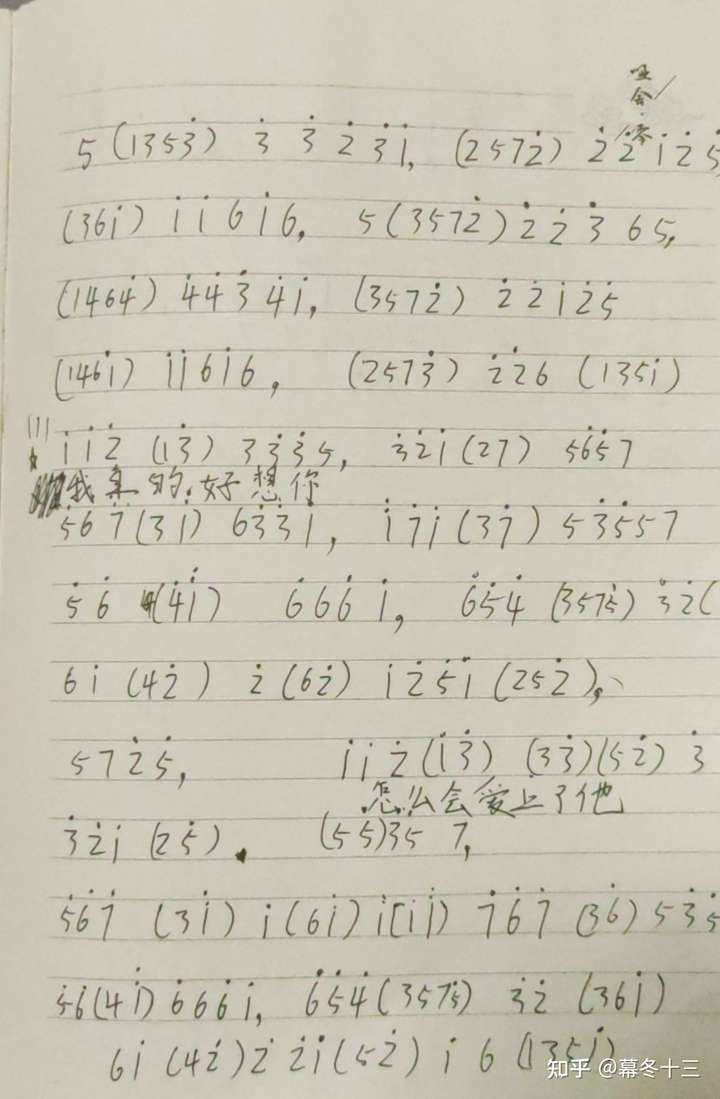 5 (1353̇) 3̇ 3̇ 2̇ 3̇ 1̇, (2572̇) 2̇ 2̇ 1̇ 2̇ 5
(361̇) 1̇ 1̇ 6 1̇ 6, 5 (3572̇) 2̇ 2̇ 3̇ 6 5,
(1464̇) 4̇ 4̇ 3̇ 4̇ 1̇, (3572̇) 2̇ 2̇ 1̇ 2̇ 5
(1461̇) 1̇ 1̇ 6 1̇ 6, (2573̇) 2̇ 2̇ 6 (1351̇)
1̇ 1̇ 2̇ (13̇) 3 3̇ 3̇ 5, 3̇ 2̇ 1̇ (27) 5 6̇ 5 7
我真的好想你
5 6 7̇ (31̇) 6 3̇ 3̇ 1̇, 1̇ 7̇ 1̇ (37̇) 5 3̇ 5 5 7
5̇ 6̇ (4̇1̇) 6̇ 6 6̇ 1̇, 6̇ 5̇ 4̇ (3575̇) 3̇ 2̇ (
6 1̇ (42̇) 2̇ (62̇) 1̇ 2̇ 5̇ 1̇ (252̇),
5 7 2̇ 5̇, 1̇ 1̇ 2̇ (1̇3̇) (33̇)(52̇) 3̇
怎么会爱上了他
3̇ 2̇ 1̇ (25̇). (55)35 7,
5̇ 6̇ 7̇ (31̇) 1̇ (61̇) 1̇ (1̇1̇) 7̇ 6̇ 7̇ (36̇) 5 3̇ 5
5̇ 6̇ (41̇) 6̇ 6 6̇ 1̇, 6̇ 5̇ 4̇ (3575̇) 3̇ 2̇ (361̇)
6 1̇ (42̇) 2̇ 2̇ 1̇ (52̇) 1̇ 6 (1351̇)
知乎 @幕冬十三